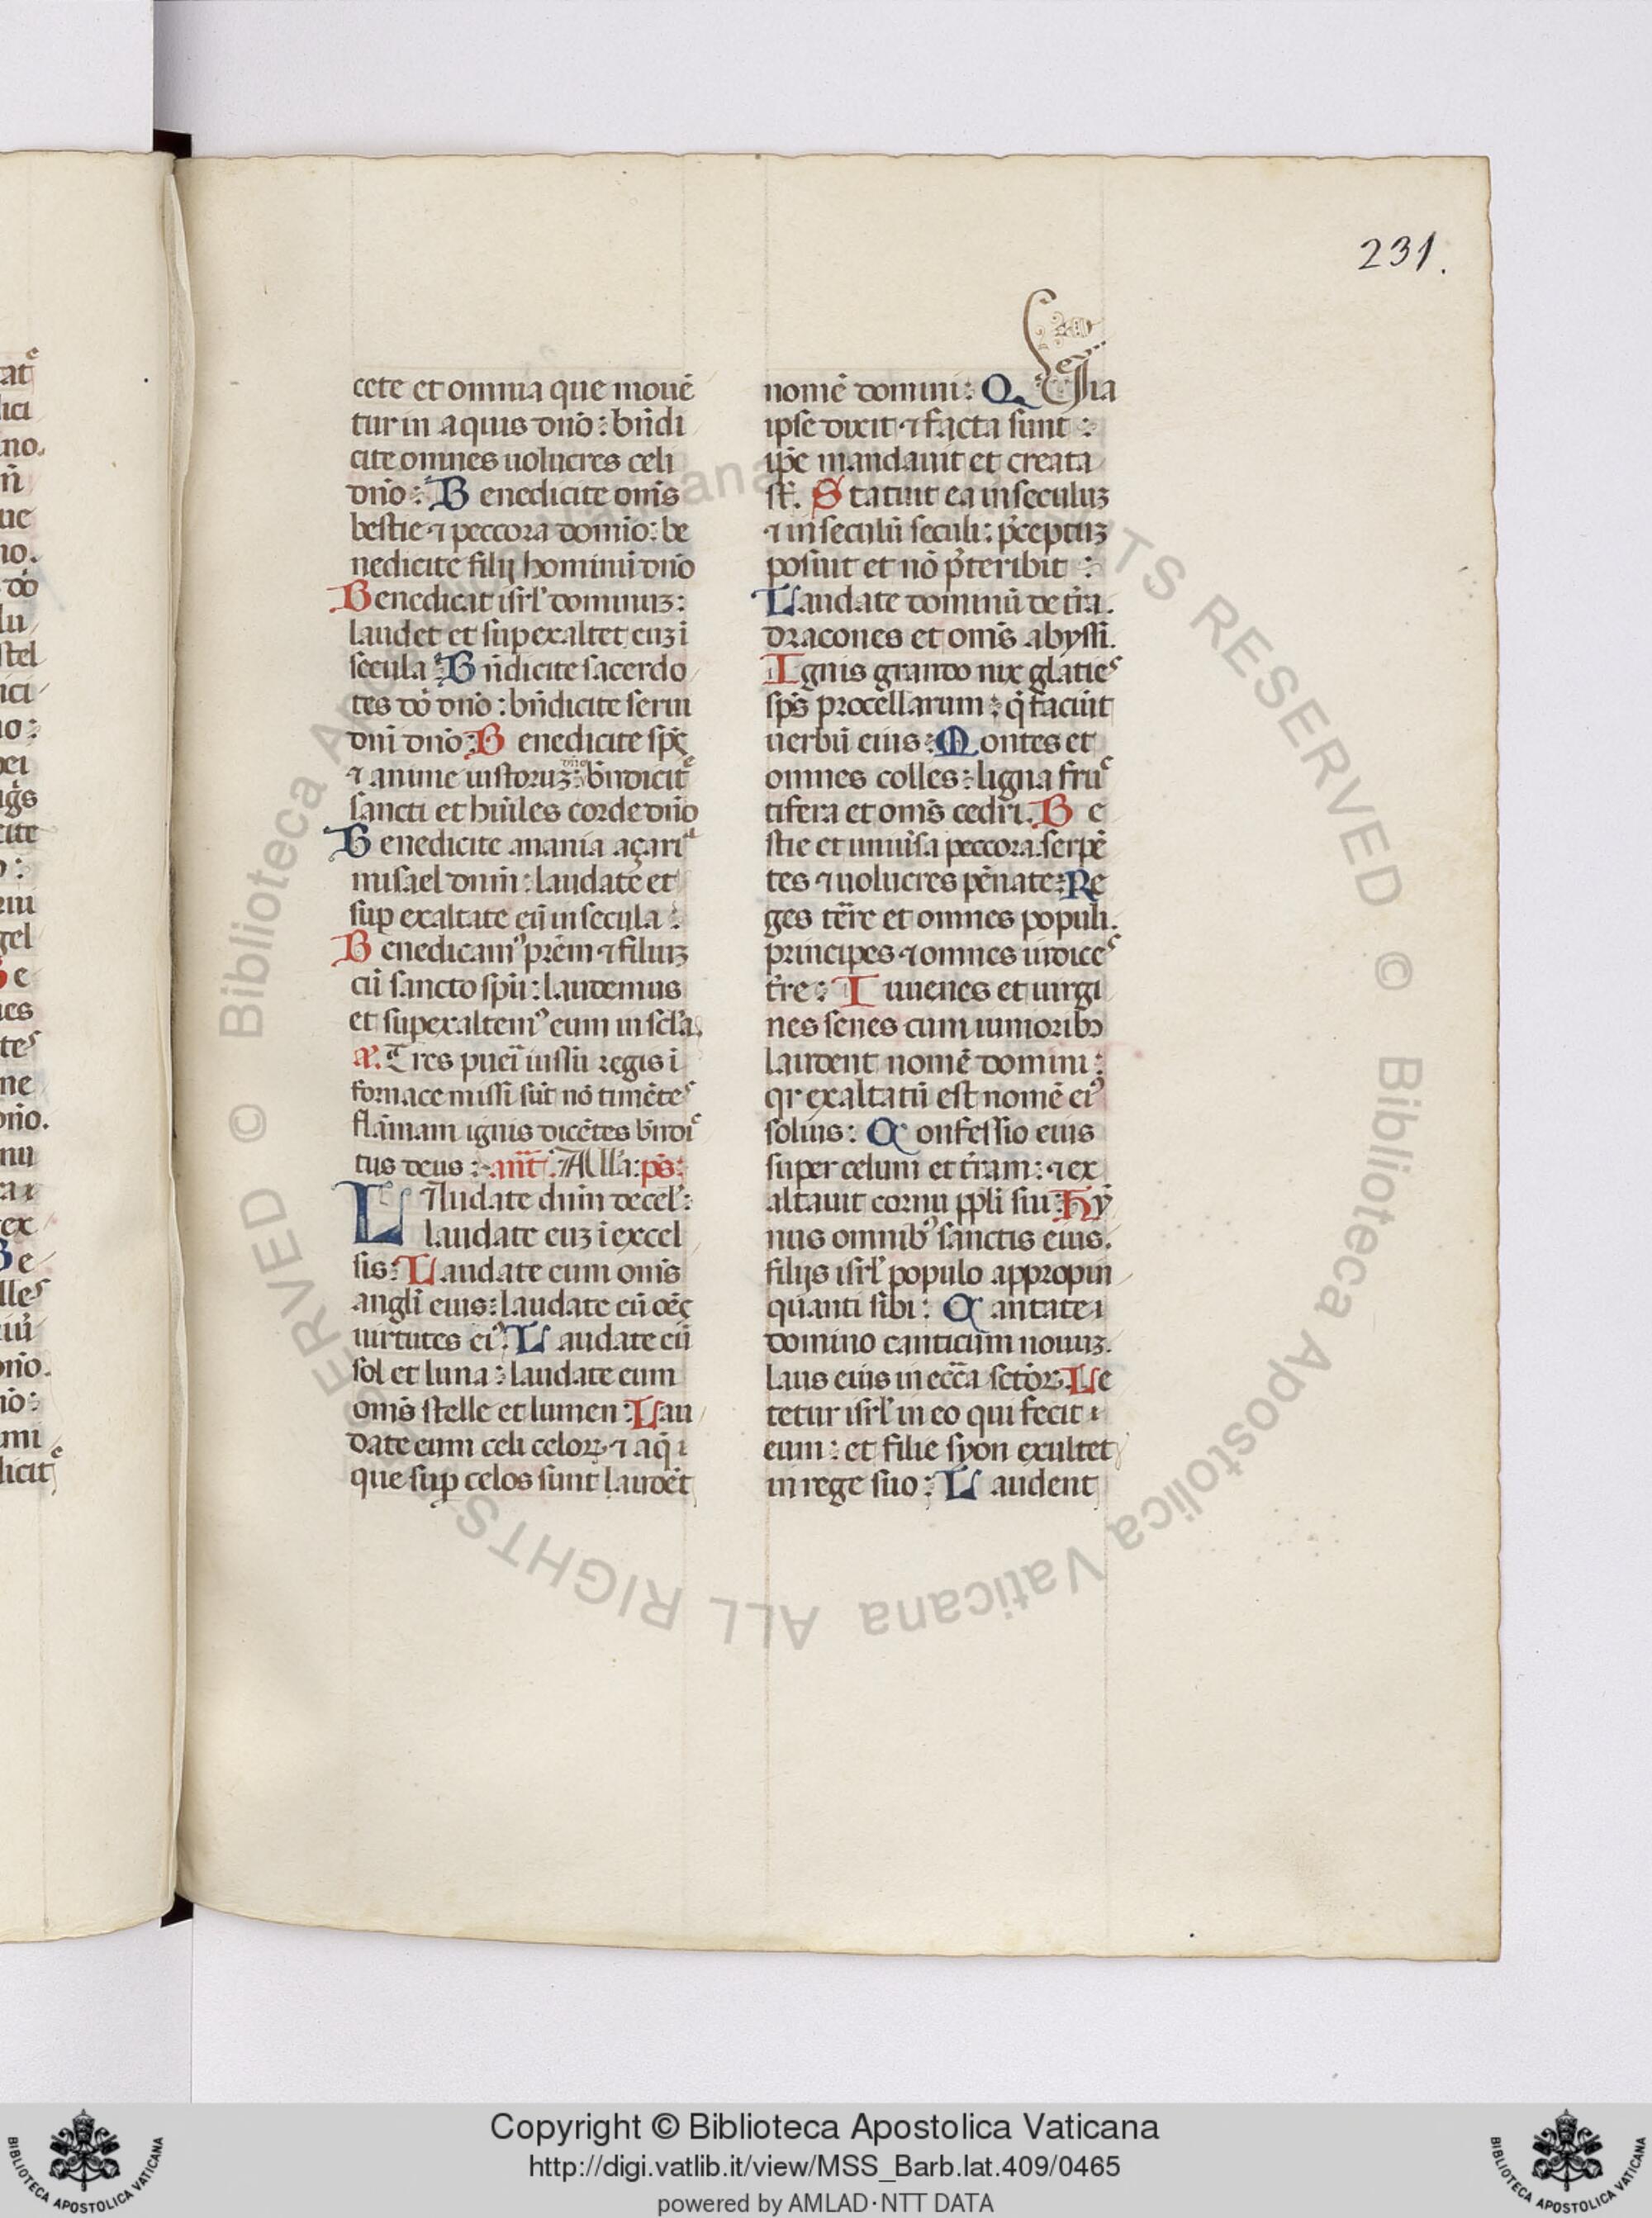 231.
cete et omnia que mouē
tur in aquis dn̄o: bn̄di
cite omnes uolucres celi
dn̄o: Benedicite om̄s
bestie ⁊ peccora domīo: be
nedicite filij hominū dn̄o
Benedicat isrl̓ dominuꝫ:
laudet et suꝑexaltet euꝫ ī
secula: Bn̄dicite sacerdo
tes dō dn̄o: bn̄dicite serui
dnī dn̄o: Benedicite sp̄ꝫ
⁊ anime iustoruꝫ dn̄o: bn̄dicitᵉ
sancti et hūiles corde dn̄o
Benedicite anania açariᵃ
misael dnm̄: laudate et
suꝑ exaltate eū in secula:
Benedicamꝰ prēm ⁊ filiuꝫ
cū sancto spū: laudemus
et suꝑexaltemꝰ eum in scl̓a.
a᷒. Tres pueī iussū regis ī
fornace missi sūt nō timēteˢ
flāmam ignis dicētes bn̄diᶜ
tus deus: ant̄. All̓a: ps̄:
Laudate dnm̄ de cel̓:
laudate euꝫ ī excel
sis: Laudate eum om̄s
angl̓i eius: laudate eū oēꝫ
uirtutes eiꝰ. Laudate eū
sol et luna: laudate eum
om̄s stelle et lumen: Lau
date eum celi celoꝝ ⁊ aq̄
que suꝑ celos sunt laudēt
nomē domini: Quia
ipse dixit ⁊ facta sunt:
ip̄e mandauit et creata
st̄. Statuit ea in seculuꝫ
⁊ in seculū seculi: p̄ceptuꝫ
posuit et nō p̄teribit:
Laudate dominū de tr̄a.
dracones et om̄s abyssi.
Ignis grando nix glacieˢ
sp̄s procellarum: q̄ faciūt
uerbū eius: Montes et
omnes colles: ligna fruᶜ
tifera et om̄s cedri. Be
stie et uniūsa peccora. serpē
tes ⁊ uolucres pēnate: Re
ges tēre et omnes populi.
principes ⁊ omnes iudiceˢ
tr̄e: Iuuenes et uirgi
nes senes cum iunioribꝫ
laudent nomē domini:
qr exaltatū est nomē eiꝰ
solius: Confessio eius
super celum et tr̄am: ⁊ ex
altauit cornu ppl̓i sui: Hy̓
nus omnibꝰ sanctis eius.
filijs isrl̓ populo appropin
quanti sibi: Cantate
domino canticum nouuꝫ.
laus eius in ecc̄a sctōꝝ. Le
tetur isrl̓ in eo qui fecit
eum: et filie syon exultet
in rege suo: Laudent
Copyright © Biblioteca Apostolica Vaticana
http://digi.vatlib.it/view/MSS_Barb.lat.409/0465
powered by AMLAD·NTT DATA
BIBLIOTECA APOSTOLICA VATICANA
BIBLIOTECA APOSTOLICA VATICANA
© Biblioteca Apostolica Vaticana ALL RIGHTS RESERVED
© Biblioteca Apostolica Vaticana ALL RIGHTS RESERVED